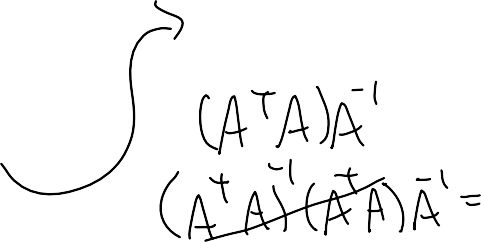 (AᵀA)A⁻¹
(AᵀA)⁻¹(AᵀA)A⁻¹ =